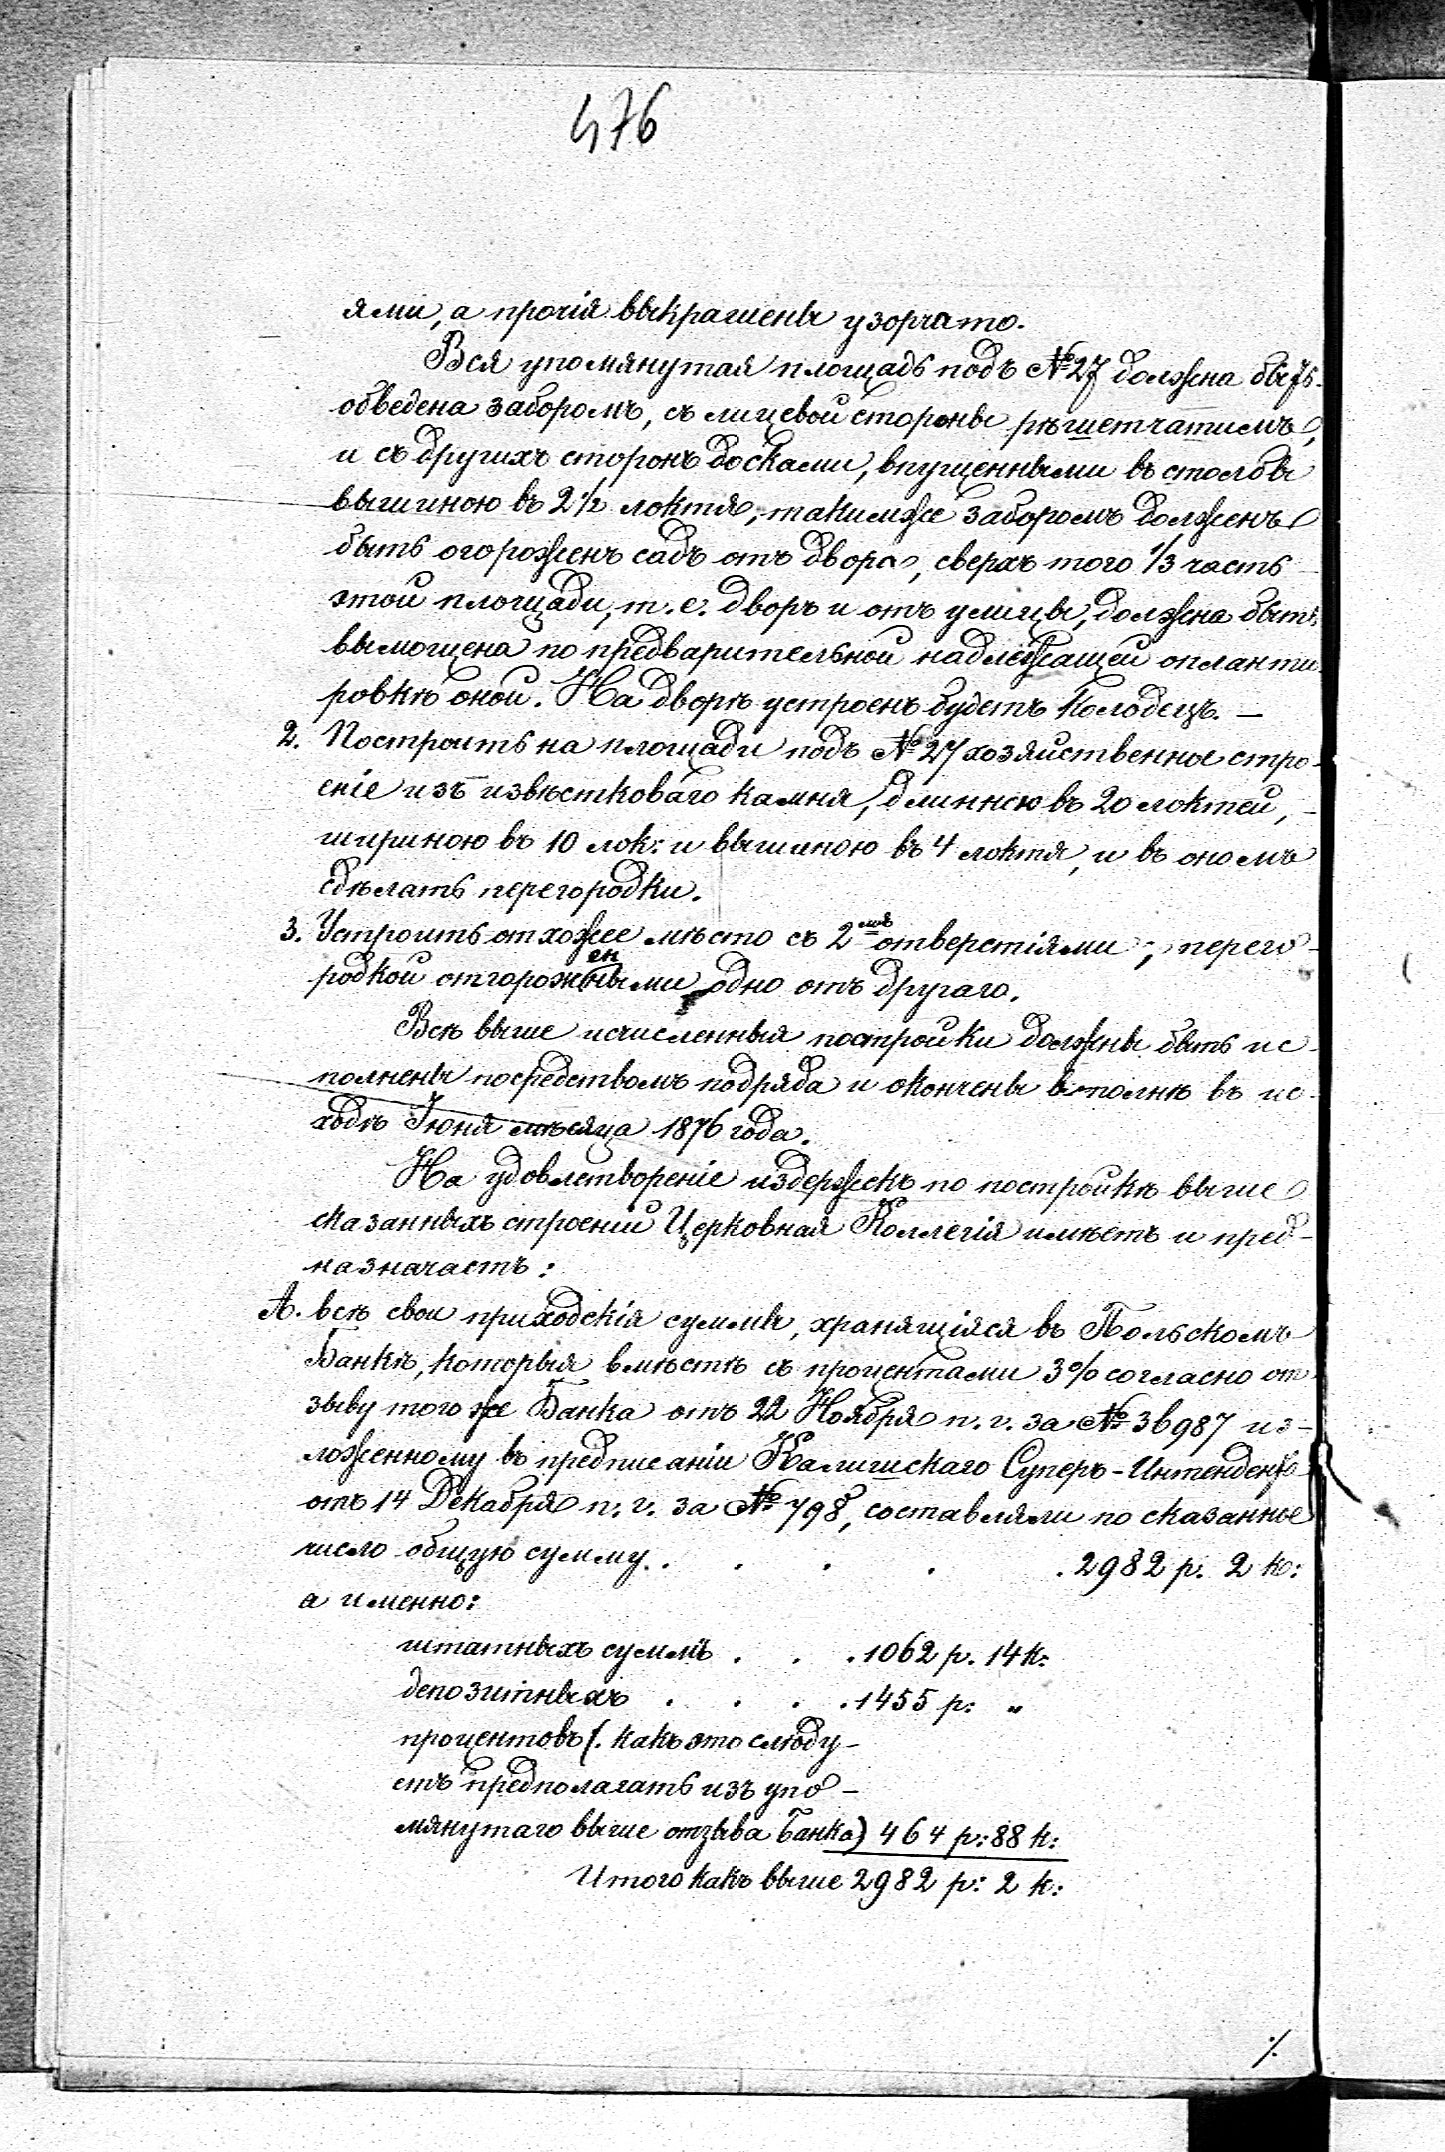 476
ями, а прочія выкрашены узорчато.
Вся упомянутая площадь подъ № 27 должна быть
обведена заборомъ, съ лицевой стороны рѣшетчатымъ,
и съ другихъ сторонъ досками, впущенными въ столбы
вышиною въ 2 1/2 локтя; такимже заборомъ долженъ
быть огороженъ садъ отъ двора, сверхъ того 1/3 часть
этой площади, т. е. дворъ и отъ улицы, должна быть
вымощена по предварительной надлежащей опланти
ровкѣ оной. На дворѣ устроенъ будетъ колодецъ. —
2. Построить на площади подъ № 27 хозяйственное стро-
еніе изъ известковаго камня, длинною въ 20 локтей,
шириною въ 10 лок: и вышиною въ 4 локтя, и въ ономъ
сдѣлать перегородки.
3. Устроить отхожее мѣсто съ 2мя отверстіями; перего-
родкой отгорожеными одно отъ другаго.
Всѣ выше исчисленныя постройки должны быть ис-
полнены посредствомъ подряда и окончены вполнѣ въ ис-
ходѣ Іюня мѣсяца 1876 года.
На удовлетвореніе издержекъ по постройкѣ выше
сказанныхъ строеній Церковная Коллегія имѣетъ и пред-
назначаетъ:
А. всѣ свои приходскія суммы, хранящіяся въ Польскомъ
Банкѣ, которыя вмѣстѣ съ процентами 3% согласно от
зыву того же Банка отъ 22 Ноября п. г. за № 36987 из-
ложенному въ предписаніи Калишскаго Суперъ-Интендента
отъ 14 Декабря п. г. за № 798, составляли по сказанное
число общую сумму. . . . . 2982 р. 2 к:
а именно:
штатныхъ суммъ . . . 1062 р. 14 к:
депозитныхъ . . . . 1455 р: „
процентовъ (. какъ это слѣду-
етъ предполагать изъ упо-
мянутаго выше отзыва Банка) 464 р: 88 к:
Итого какъ выше 2982 р: 2 к:
./.